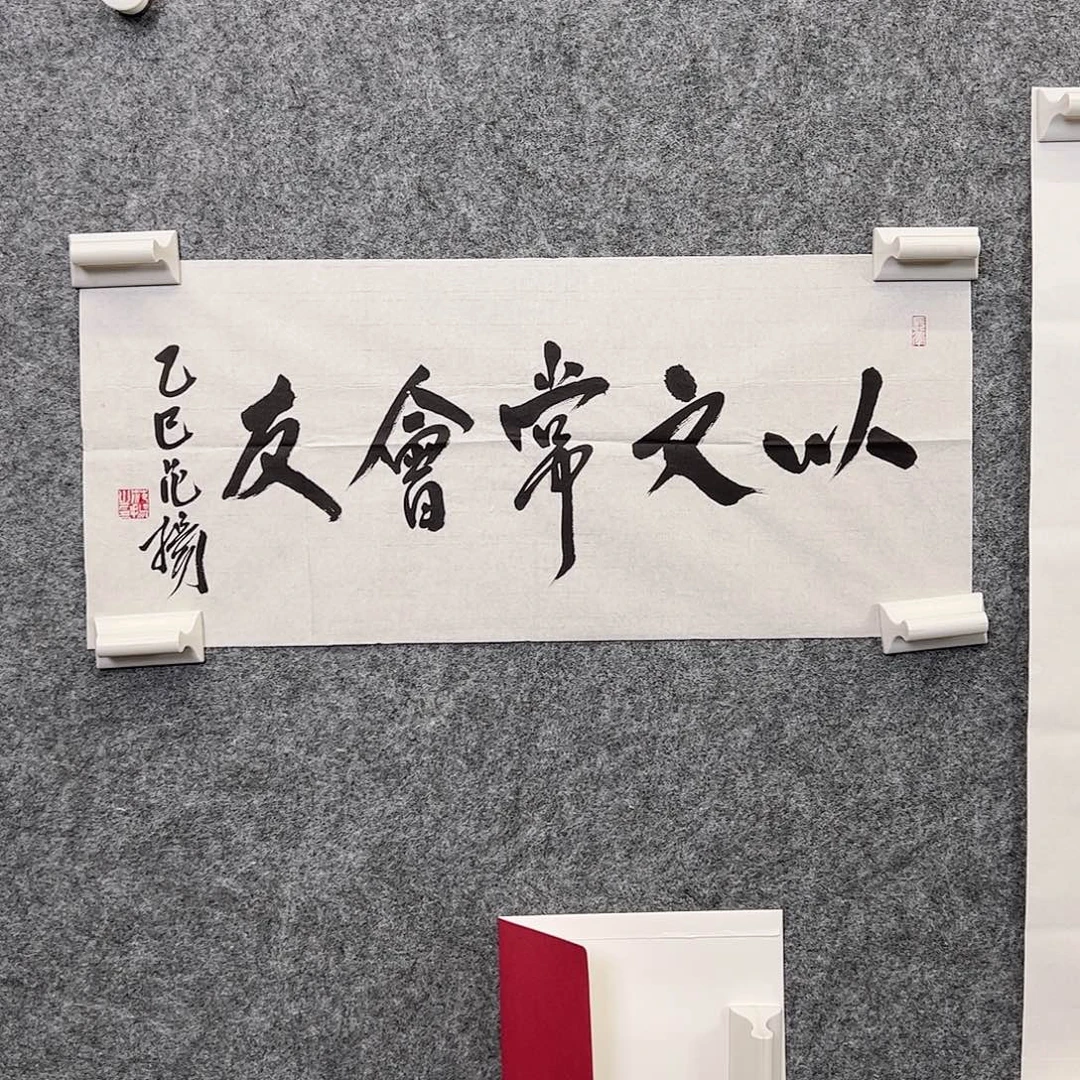 以文常會友
乙巳范